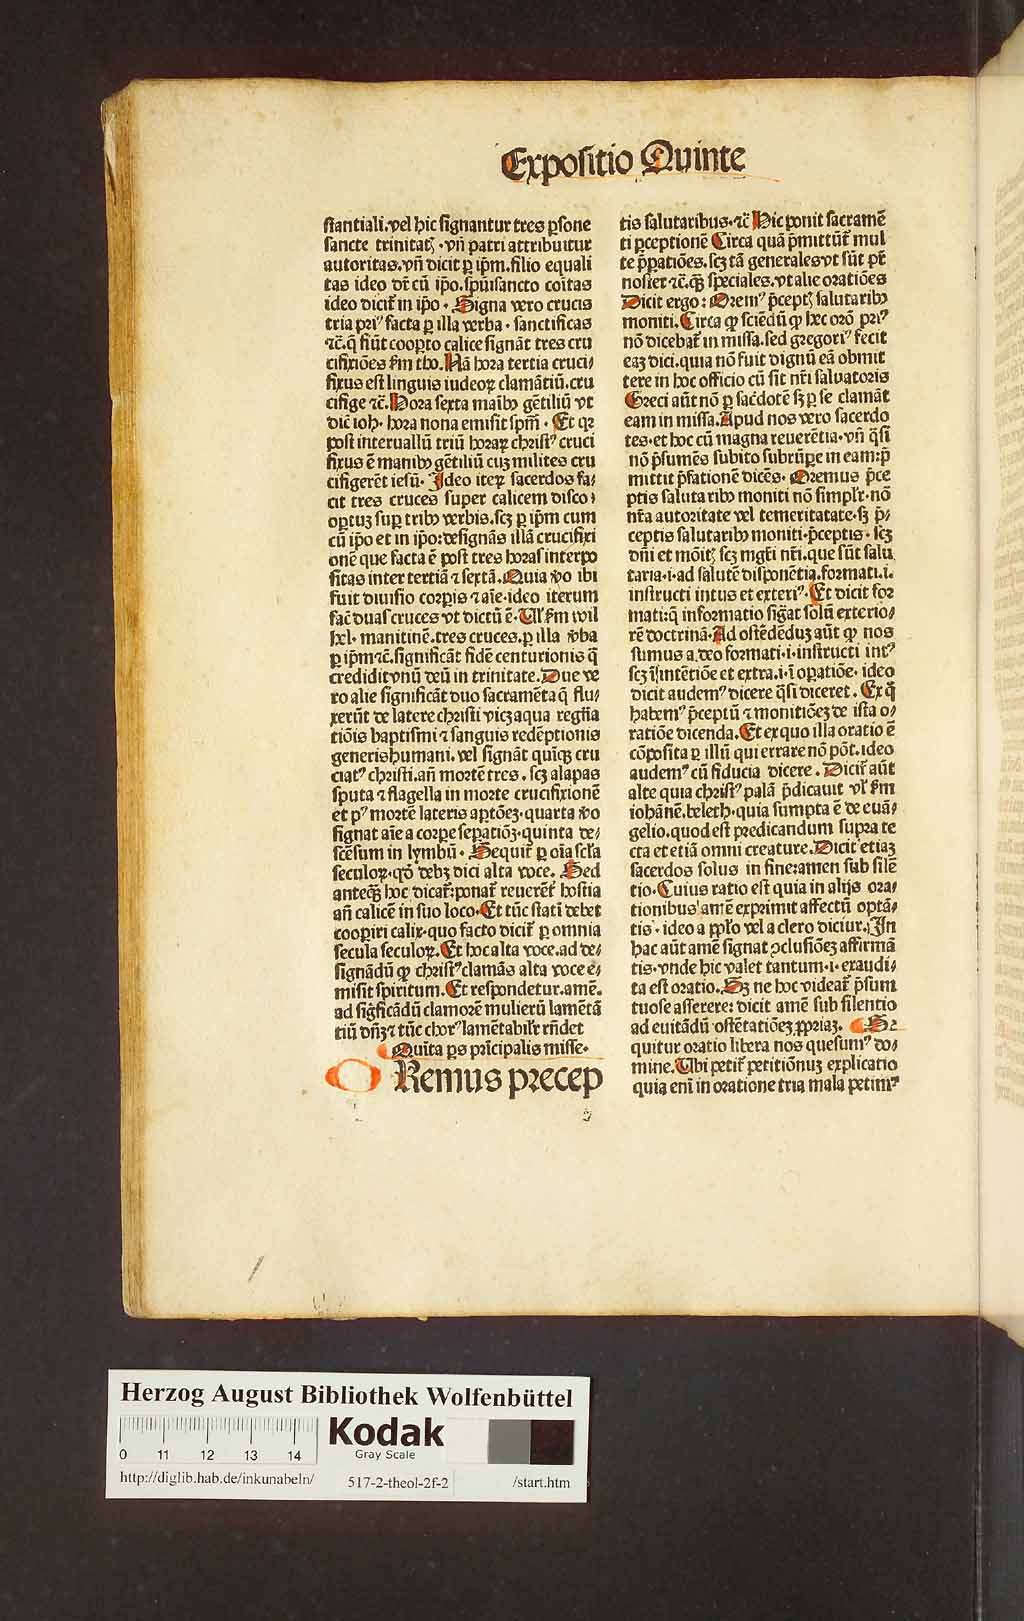 Expositio Quinte
stantiali.vel hic signantur tres ꝑsone
sancte trinitatꝭ·vn̄ patri attribuitur
autoritas.vn̄ dicit ꝑ ip̄m.filio equali
tas ideo dr̄ cū ip̄o.spūisancto coītas
ideo dicit̄ in ip̄o·Signa vero crucis
tria priꝰ facta ꝑ illa verba·sanctificas
⁊c̄.q̄ fiūt cooꝑto calice signāt tres cru
cifixiōes ẜm tho.Nā hora tertia cruci⸗
fixus est linguis iudeoꝝ clamātiū.cru
cifige ⁊c̄.Hora sexta maībꝰ gētiliū vt
dic̄ ioh·hora nona emisit sp̄m·Et qꝛ
post interuallū triū horaꝝ christꝰ cruci
fixus ē manibꝰ gētiliū cuꝫ milites cru
cifigerēt iesū·Ideo iteꝝ sacerdos fa⸗
cit tres cruces super calicem disco⸗
oꝑtuꝫ suꝑ tribꝰ verbis.scꝫ ꝑ ip̄m cum
cū ip̄o et in ip̄o:designās illā crucifixi
onē que facta ē post tres horas interpo
sitas inter tertiā ⁊ sextā.Quia ꝟo ibi
fuit diuisio corꝑis ⁊ aīe·ideo iterum
fac̄ duas cruces vt dictū ē·Ul̄ ẜm wil
hel·manitinē.tres cruces.ꝑ illa ꝟba
ꝑ ip̄m ⁊c̄.significāt fidē centurionis q̄
credidit vnū deū in trinitate.Due ve
ro alie significāt duo sacramēta q̄ flu⸗
xerūt de latere christi vicꝫ aqua regn̄a
tiōis baptismi ⁊ sanguis redēptionis
generis humani.vel signāt quīqꝫ cru
ciatꝰ christi.an̄ mortē tres·scꝫ alapas
sputa ⁊ flagella in morte crucifixionē
et pꝰ mortē lateris aꝑtōeꝫ·quarta ꝟo
signat aīe a corꝑe seꝑatiōꝫ·quinta de⸗
scēsum in lymbū·Sequit̄ ꝑ oīa scl̄a
seculoꝝ·qd̄ debꝫ dici alta voce.Sed
anteqꝫ hoc dicat̄:ponat̄ reuerēt̄ hostia
an̄ calicē in suo loco·Et tūc statī debet
cooperiri calix·quo facto dicit̄ ꝑ omnia
secula seculoꝝ.Et hoc alta voce.ad de⸗
signādū ꝙ christꝰ clamās alta voce e⸗
misit spiritum.Et respondetur.amē.
ad sig̅ficādū clamorē mulierū lamētā
tiū dn̄ꝫ ⁊ tūc chorꝰ lamētabilr̄ rn̄det
Quīta ꝑs prīcipalis misse·
ORemus precep
tis salutaribus·⁊c̄ Hic ponit sacramē
ti ꝑceptionē Circa quā p̄mittūt̄ mul
te p̄ꝑatiōes.scꝫ tā generales vt sūt pr̄
noster ⁊c̄.qꝫ speciales.vt alie oratiōes
Dicit ergo:Oremꝰ p̄ceptꝭ salutaribꝰ
moniti.Circa qꝙ sciēdū ꝙ hec orō priꝰ
nō dicebat̄ in missa.sed gregoriꝰ fecit
eaꝫ dici.quia nō fuit dignū eā obmit
tere in hoc officio cū sit nr̄i saluatoris
Greci aūt nō ꝑ sac̄dotē sꝫ ꝑ se clamāt
eam in missa.Apud nos vero sacerdo
tes·et hoc cū magna reuerētia·vn̄ q̄si
nō p̄sumēs subito subrūꝑe in eam:p̄
mittit p̄fationē dicēs·Oremus p̄ce
ptis salutaribꝰ moniti nō simplr̄·nō
nr̄a autoritate vel temeritatate·sꝫ p̄⸗
ceptis salutaribꝰ moniti·p̄ceptis·scꝫ
dn̄i et mōitꝭ scꝫ mgr̄i nr̄i.que sūt salu
taria·i·ad salutē disponētia.formati.i.
instructi intus et exteriꝰ·Et dicit for
mati:q̄ informatio sig̅at solū exterio⸗
rē doctrinā·Ad ostēdēduꝫ aūt ꝙ nos
sumus a deo formati·i·instructi intꝰ
scꝫ ī ītentiōe et extra.i·ī oꝑatiōe·ideo
dicit audemꝰ dicere q̄si diceret.Ex q̄
habemꝰ p̄ceptū ⁊ monitiōeꝫ de ista o⸗
ratiōe dicenda.Et ex quo illa oratio ē
cōposita ꝑ illū qui errare nō pōt.ideo
audemꝰ cū fiducia dicere.Dicit̄ aūt
alte quia christꝰ palā p̄dicauit vl̄ ẜm
iohānē.beleth·quia sumpta ē de euā⸗
gelio.quod est predicandum supra te
cta et etiā omni creature.Dicit etiaꝫ
sacerdos solus in fine:amen sub silē
tio·Cuius ratio est quia in alijs ora⸗
tionibus amē exprimit affectū optā⸗
tiō·ideo a ppl̄o vel a clero dicitur.In
hac aūt amē signat ↄclusiōeꝫ affirmā
tis·vnde hic valet tantum·i·exaudi⸗
ta est oratio.Sꝫ ne hoc videat̄ p̄sum
tuose asserere:dicit amē sub silentio
ad euitādū ostētatiōeꝫ ꝓpriaꝫ.Se
quitur oratio libera nos quesumꝰ do⸗
mine.Ubi petit̄ petitiōnuꝫ explicatio
quia enī in oratione tria mala petimꝰ
Herzog August Bibliothek Wolfenbüttel
0 11 12 13 14
Kodak
Gray Scale
http://diglib.hab.de/inkunabeln/ 517-2-theol-2f-2 /start.htm